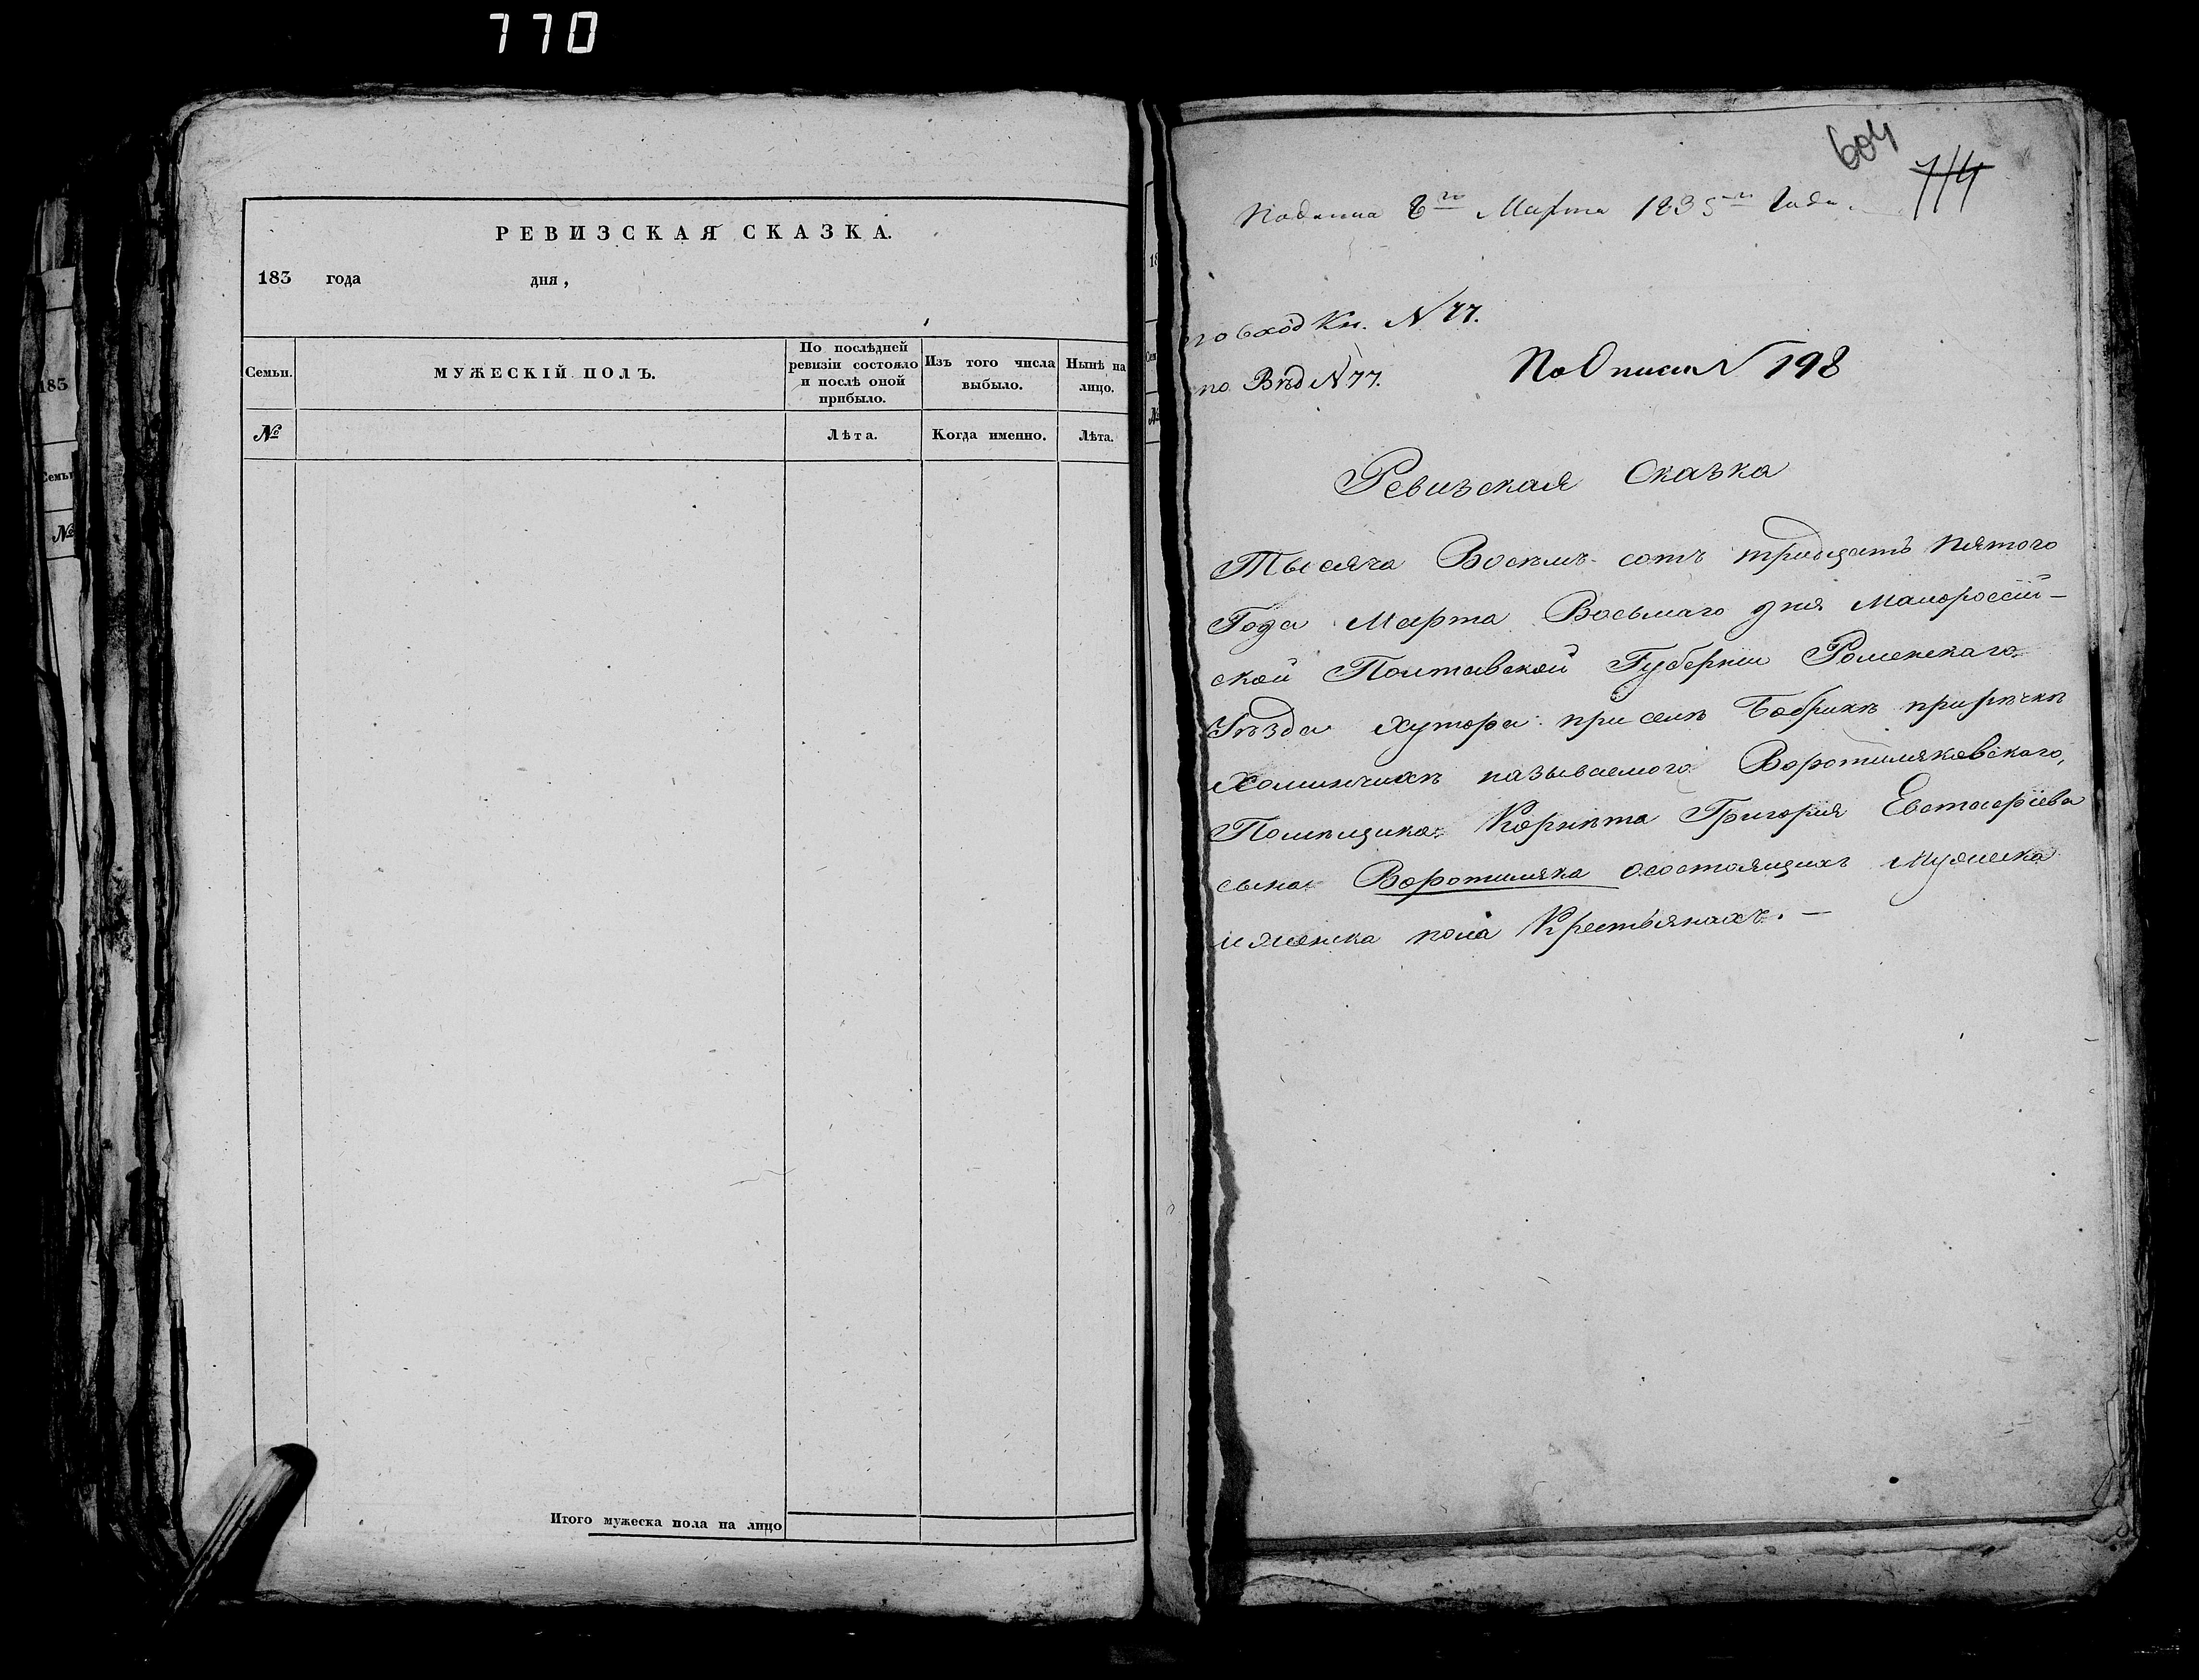 770
РЕВИЗСКАЯ СКАЗКА.
183 года дня,
Семьи.
МУЖЕСКІЙ ПОЛЪ.
По послѣдней
ревизіи состояло
и послѣ оной
прибыло.
Изъ того числа
выбыло.
Нынѣ на
лицо.
№
Лѣта.
Когда именно.
Лѣта.
Итого мужеска пола на лицо
183
Семьи
№
604
714
Подана 8го Марта 1835го Года.
по вход Кн. N 77.
по Вѣд N 77.
По Описи N 198
Ревизская Сказка
Тысяча Восемь сотъ тридцать пятого
Года Марта Восьмаго дня Малороссій-
ской Полтавской Губерніи Роменскаго
Уѣзда Хутора при селѣ Бобрикѣ при рѣчкѣ
называемого Воротиляковскаго,
Помѣщика Корнѣта Григорія Евстафіева
сына Воротиляка о состоящихъ Мужеска
и женска пола Крестьянахъ. —